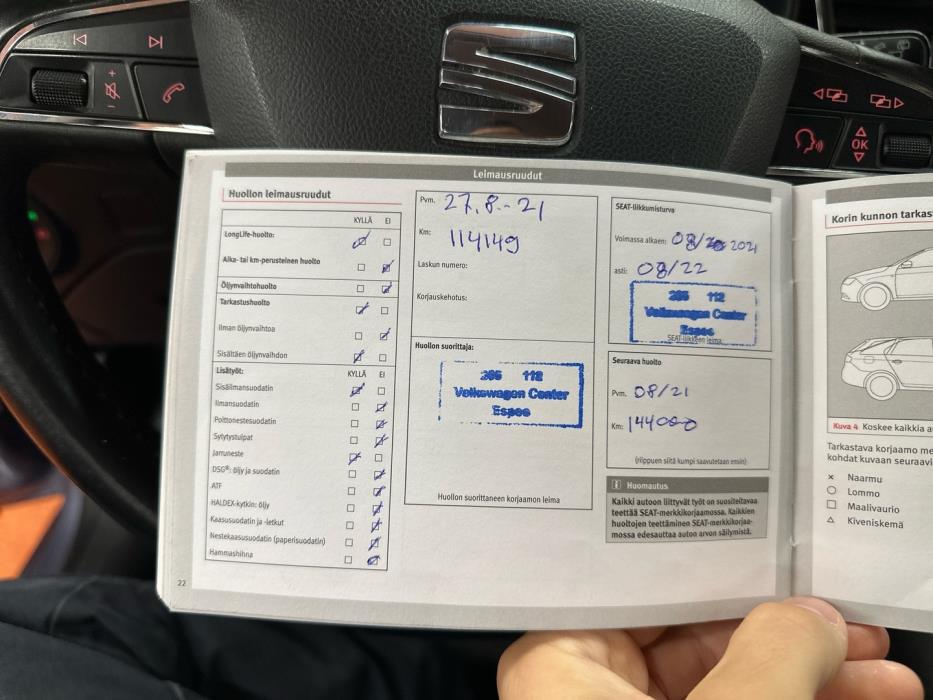 OK
Leimausruudut
Huollon leimausruudut
KYLLÄ EI
LongLife-huolto:
Aika- tai km-perusteinen huolto
Öljynvaihtohuolto
Tarkastushuolto
Ilman öljynvaihtoa
Sisältäen öljynvaihdon
Lisätyöt: KYLLÄ EI
Sisäilmansuodatin
Ilmansuodatin
Polttonestesuodatin
Sytytystulpat
Jarruneste
DSG®: öljy ja suodatin
ATF
HALDEX-kytkin: öljy
Kaasusuodatin ja -letkut
Nestekaasusuodatin (paperisuodatin)
Hammashihna
22
Pvm. 27.8.-21
Km: 114149
Laskun numero:
Korjauskehotus:
Huollon suorittaja:
112
Volkswagen Center
Espoo
Huollon suorittaneen korjaamon leima
SEAT-liikkumisturva
Voimassa alkaen: 08/ 2021
asti: 08/22
112
Volkswagen Center
Espoo
SEAT-liikkeen leima
Seuraava huolto
Pvm. 08/21
Km: 144000
(Riippuen siitä kumpi saavutetaan ensin)
Huomautus
Kaikki autoon liittyvät työt on suositeltavaa
teettää SEAT-merkkikorjaamossa. Kaikkien
huoltojen teettäminen SEAT-merkkikorjaa-
mossa edesauttaa auton arvon säilymistä.
Korin kunnon tarkas
Kuva 4 Koskee kaikkia a
Tarkastava korjaamo me
kohdat kuvaan seuraavi
× Naarmu
○ Lommo
□ Maalivaurio
△ Kiveniskemä